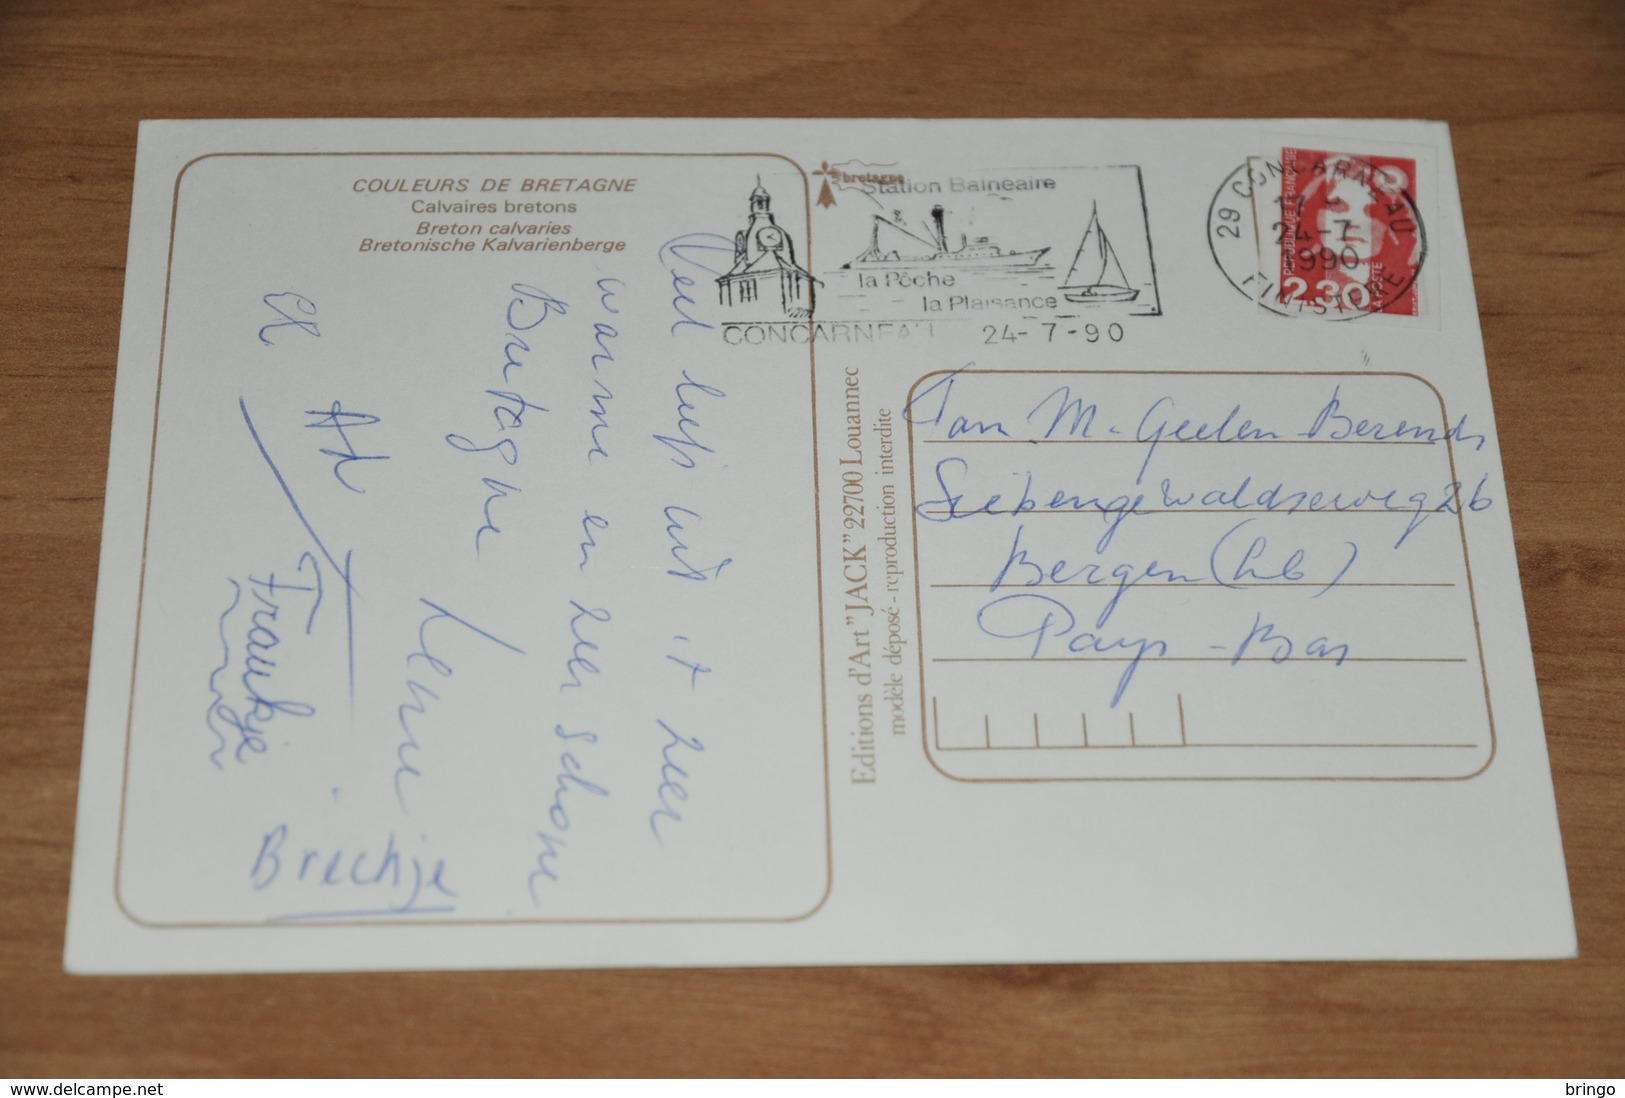 COULEURS DE BRETAGNE
Calvaires bretons
Breton calvaries
Bretonische Kalvarienberge
Veel liefs uit 't zeer
warme en zeer schone
Bretagne
Lenie
en Ad
Frankje
Brechje
bretagne
Station Balnéaire
la Pêche
la Plaisance
CONCARNEAU 24-7-90
29 CONCARNEAU
24-7
1990
FINISTERE
REPUBLIQUE FRANÇAISE
2,30
LA POSTE
Editions d'Art "JACK" 22700 Louannec
modèle déposé - reproduction interdite
Fam. M. Geelen-Berends
Siebengewaldseweg 26
Bergen (Lb)
Pays-Bas
www.delcampe.net
bringo